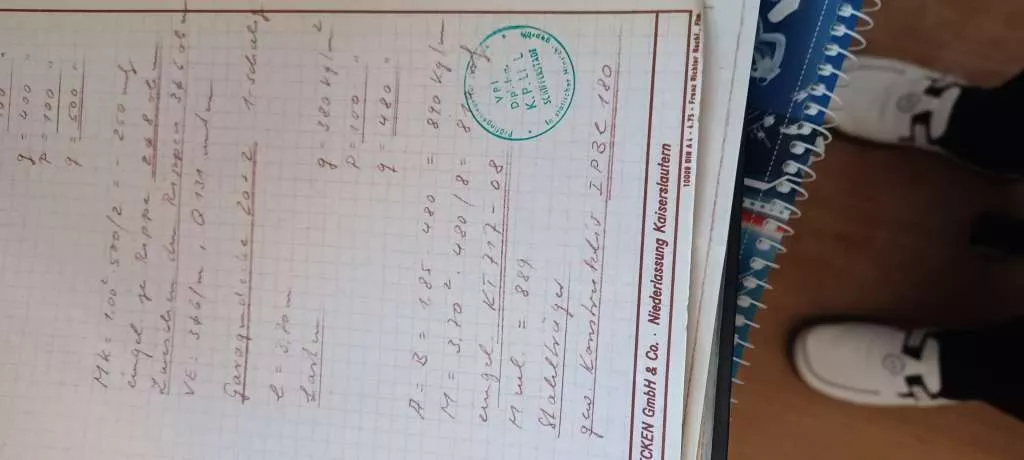 g = 400 "
p = 100 "
q = 500 "
Mk = 1.00² · 500/2 = - 250 mkg
eingel. je Rippe 2 ø 8 oben
Zwischen den Rippen 3 ø 6 oben
VE: 3 ø 6/m, Q 131 unten
Garagendecke
l = 3.70 m
Lasten
g = 380 kg/m²
p = 100 "
q = 480 "
A = B = 1.85 · 480 = 890 kg/m
M = 3.70² · 480/8 =
eingel. KT 717-08
M zul. = 889
Stahlträger
gew. konstruktiv IPBL 180
VPI
SCHIFFERSTADT
ECKEN GmbH & Co. · Niederlassung Kaiserslautern
10000 DIN A 4 - 4.75 - Franz Richter Nachf.